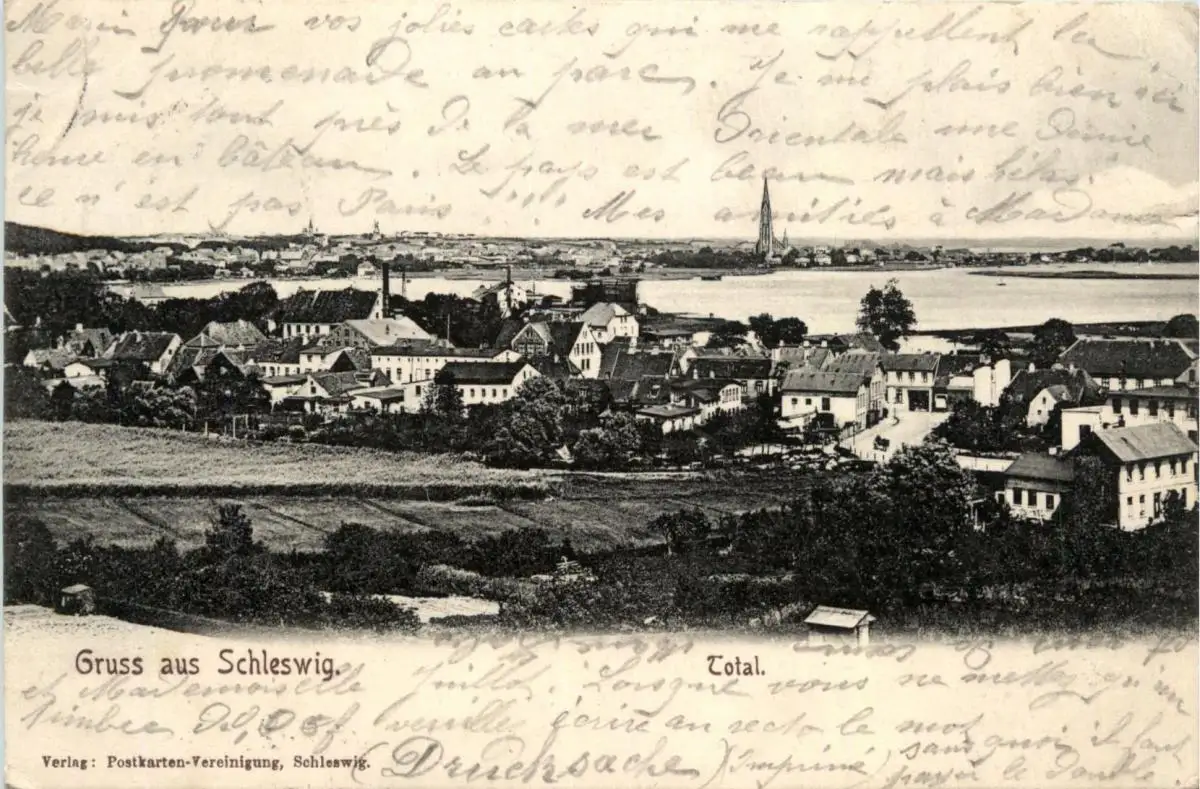 Merci pour vos jolies cartes qui me rappellent la
belle promenade au parc. Je me plais bien ici
je suis tout près de la mer Orientale une Demie
heure en bâteau. Le pays est beau mais hélas!
ce n'est pas Paris!!! Mes amitiés à Madame
Gruss aus Schleswig.
Total.
et Mademoiselle Juillet. Lorsque vous ne mettez qu'un
timbre de 0,05f veuillez écrire au recto le mot
(Drucksache) (imprimé) sans quoi il faut
payer le double.
Verlag: Postkarten-Vereinigung, Schleswig.